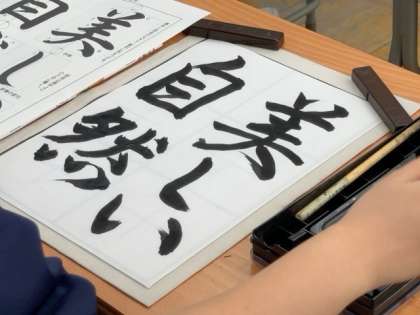 美しい
自然
美しい
自